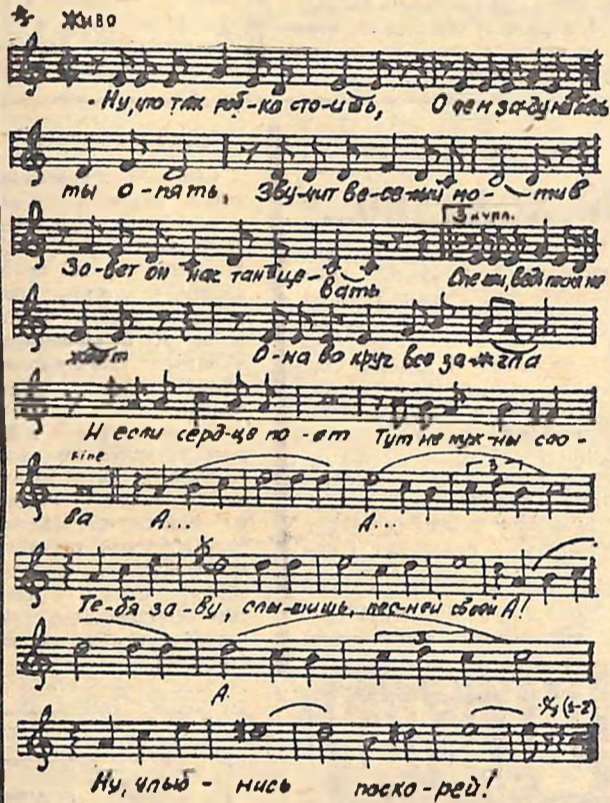 Живо
Ну, что так роб-ко сто-ишь, О чем за-ду мались
ты о-пять, Зву-чит ве-се-лый мо-тив
3 купл.
Зо-вет он нас тан-це-вать Спеши, ведь песня не
ждет О-на во круг все за-жгла
И если серд-це по-ет Тут не нуж-ны сло-
Fine
ва А... А...
3
Те-бя за-ву, слы-шишь, пес-ней своей А!
3
А
(1-2)
Ну, улыб-нись поско-рей!